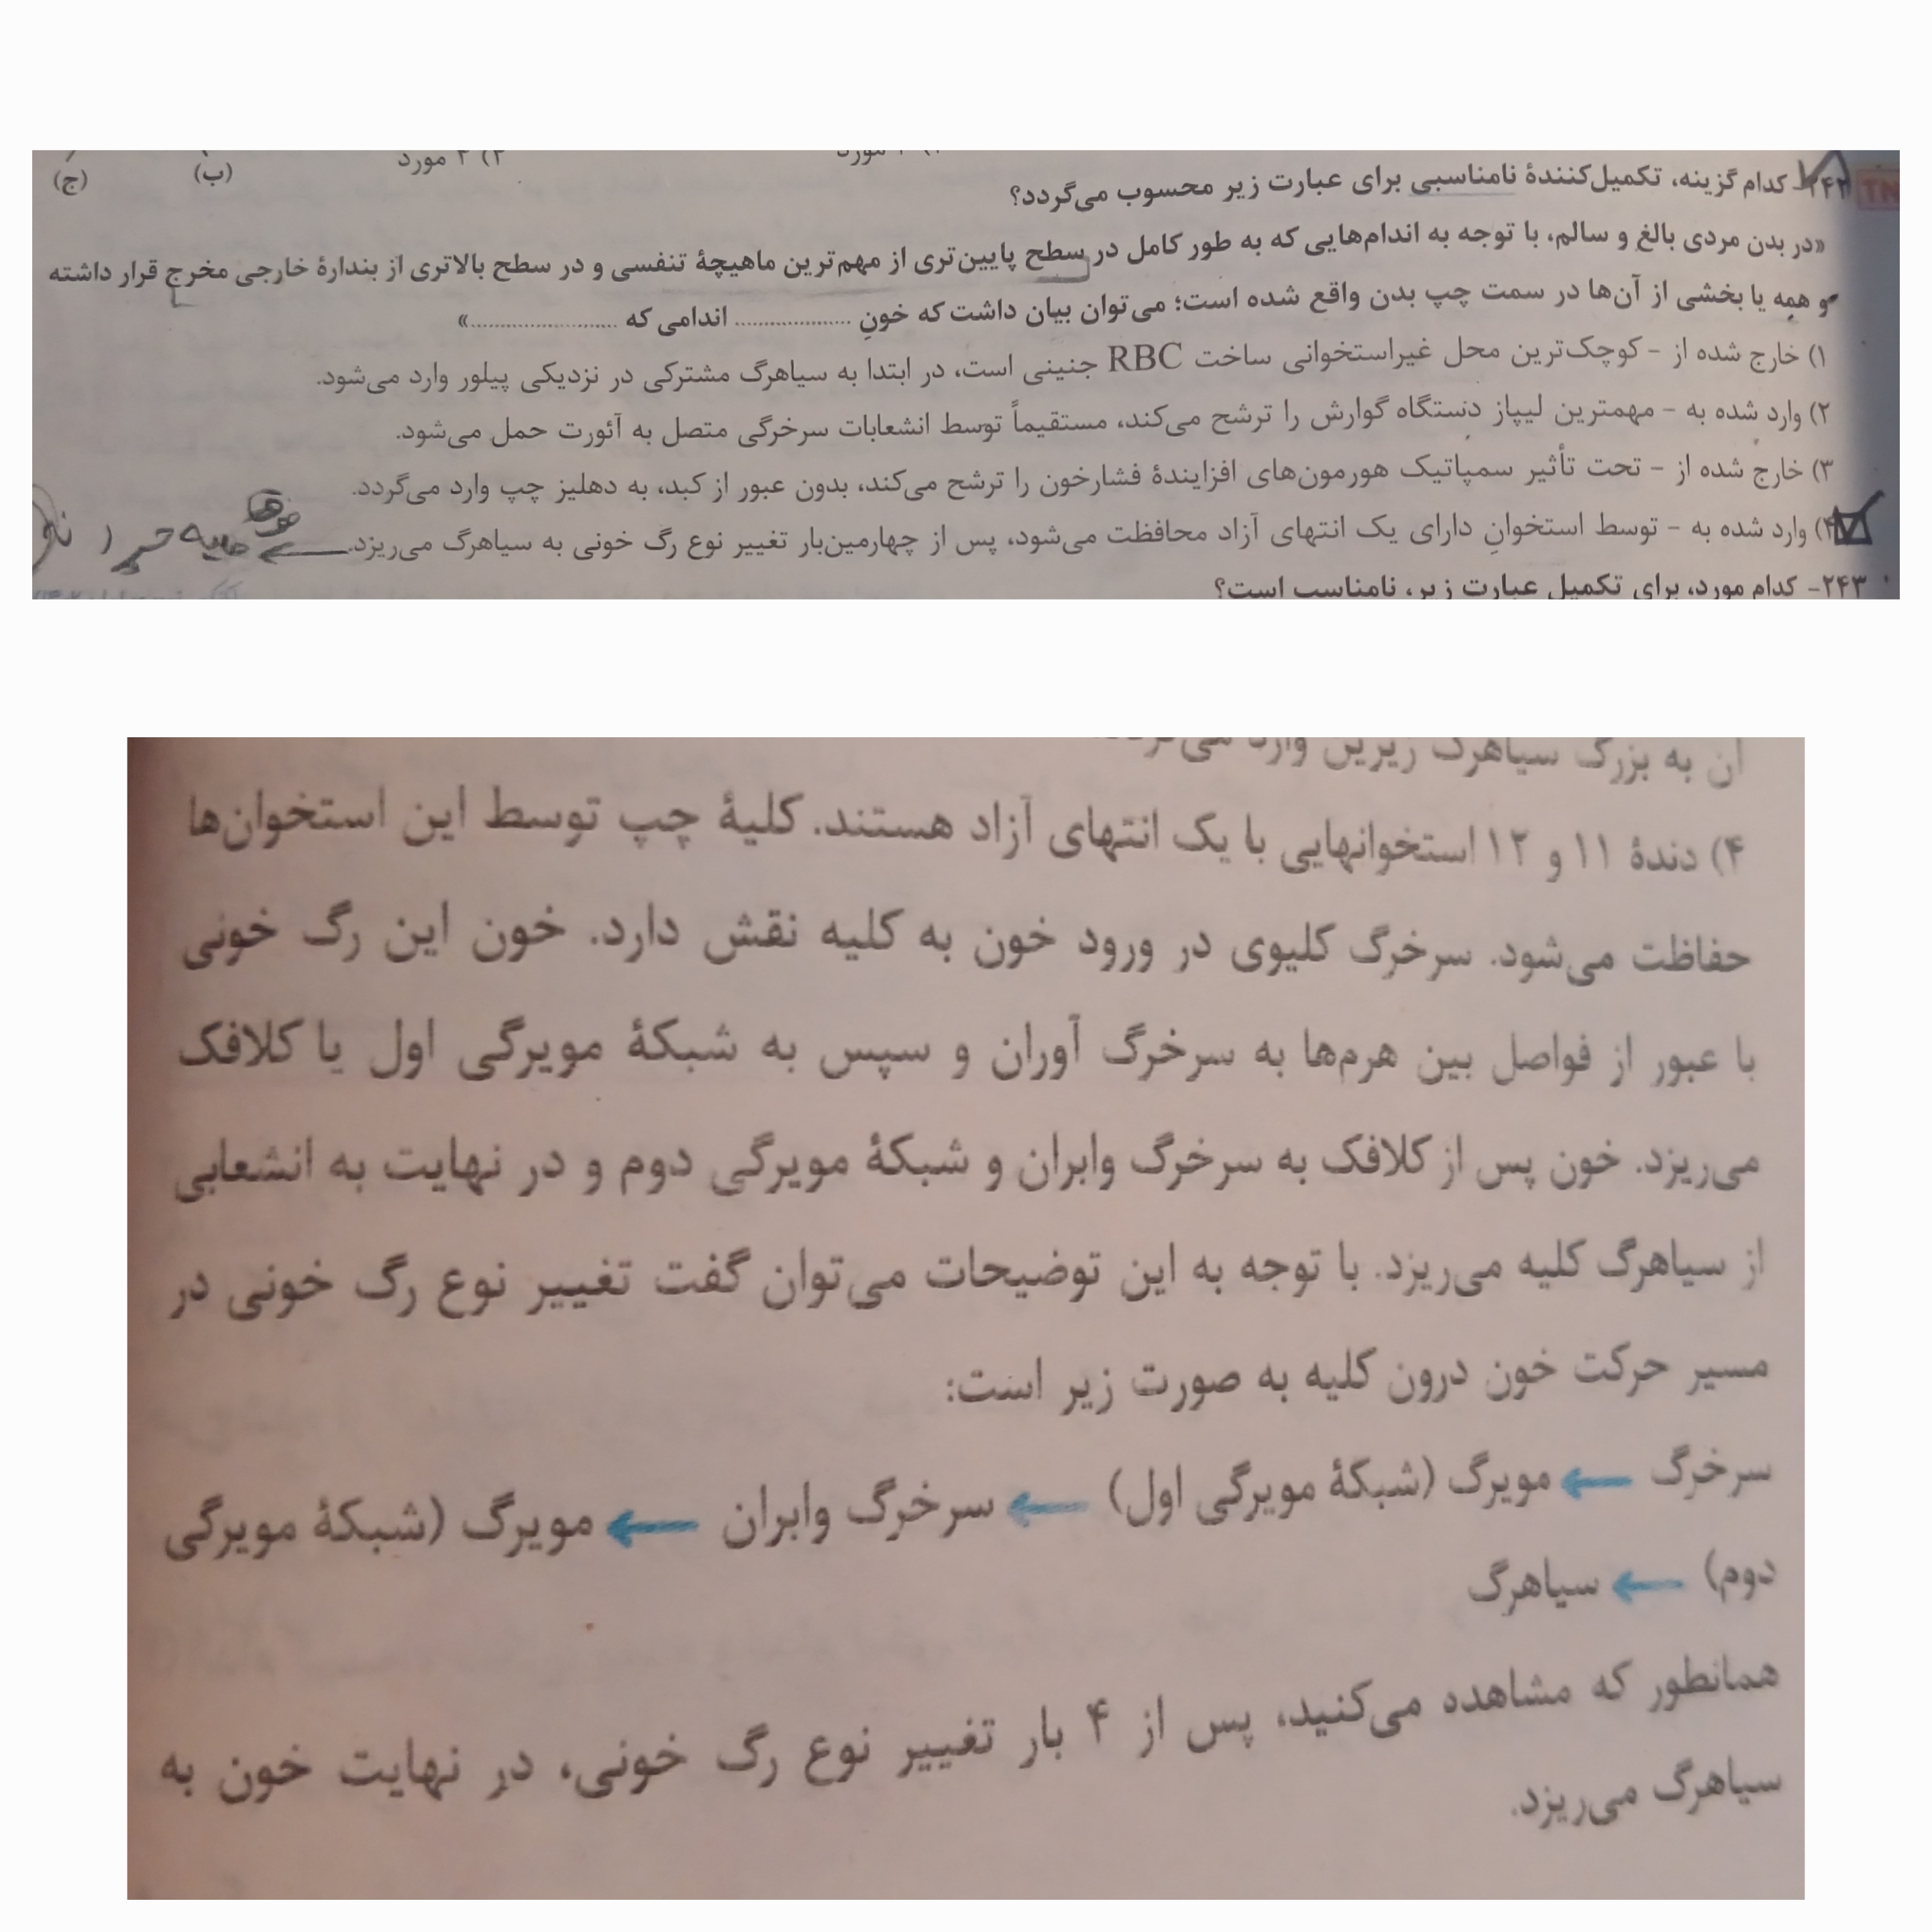 (ج)
(ب)
۳) ۳ مورد
۲۴۲- کدام گزینه، تکمیل‌کنندهٔ نامناسبی برای عبارت زیر محسوب می‌گردد؟
«در بدن مردی بالغ و سالم، با توجه به اندام‌هایی که به طور کامل در سطح پایین‌تری از مهم‌ترین ماهیچهٔ تنفسی و در سطح بالاتری از بندارهٔ خارجی مخرج قرار داشته
و همه یا بخشی از آن‌ها در سمت چپ بدن واقع شده است؛ می‌توان بیان داشت که خونِ .................... اندامی که .........................»
۱) خارج شده از - کوچک‌ترین محل غیراستخوانی ساخت RBC جنینی است، در ابتدا به سیاهرگ مشترکی در نزدیکی پیلور وارد می‌شود.
۲) وارد شده به - مهمترین لیپاز دستگاه گوارش را ترشح می‌کند، مستقیماً توسط انشعابات سرخرگی متصل به آئورت حمل می‌شود.
۳) خارج شده از - تحت تأثیر سمپاتیک هورمون‌های افزایندهٔ فشارخون را ترشح می‌کند، بدون عبور از کبد، به دهلیز چپ وارد می‌گردد.
۴) وارد شده به - توسط استخوانِ دارای یک انتهای آزاد محافظت می‌شود، پس از چهارمین‌بار تغییر نوع رگ خونی به سیاهرگ می‌ریزد.
۲۴۳- کدام مورد، برای تکمیل عبارت زیر، نامناسب است؟
آن به بزرگ سیاهرگ زیرین وارد می‌گردد.
۴) دندهٔ ۱۱ و ۱۲ استخوانهایی با یک انتهای آزاد هستند. کلیهٔ چپ توسط این استخوان‌ها
حفاظت می‌شود. سرخرگ کلیوی در ورود خون به کلیه نقش دارد. خون این رگ خونی
با عبور از فواصل بین هرم‌ها به سرخرگ آوران و سپس به شبکهٔ مویرگی اول یا کلافک
می‌ریزد. خون پس از کلافک به سرخرگ وابران و شبکهٔ مویرگی دوم و در نهایت به انشعابی
از سیاهرگ کلیه می‌ریزد. با توجه به این توضیحات می‌توان گفت تغییر نوع رگ خونی در
مسیر حرکت خون درون کلیه به صورت زیر است:
سرخرگ ← مویرگ (شبکهٔ مویرگی اول) ← سرخرگ وابران ← مویرگ (شبکهٔ مویرگی
دوم) ← سیاهرگ
همانطور که مشاهده می‌کنید، پس از ۴ بار تغییر نوع رگ خونی، در نهایت خون به
سیاهرگ می‌ریزد.